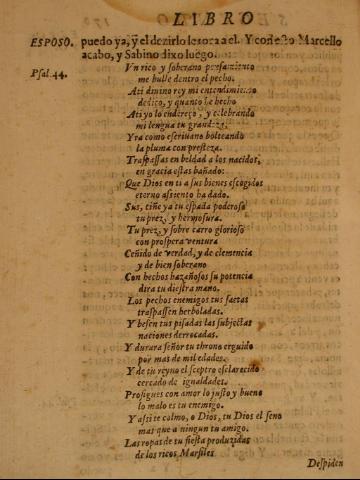 LIBRO
ESPOSO. puedo ya, y el dezirlo le toca a el. Y con esto Marcello
acabo, y Sabino dixo luego.
Psal. 44. Vn rico y soberano pensamiento
me bulle dentro el pecho.
A ti diuino rey mi entendimiento
dedico, y quanto he hecho
A ti yo lo endereço, y celebrando
mi lengua tu grandeza,
Yra como escriuano bolteando
la pluma con presteza.
Traspassas en beldad a los nacidos,
en gracia estas bañado:
Que Dios en ti a sus bienes escogidos
eterno assiento ha dado.
Sus, ciñe ya tu espada poderoso
tu prez, y hermosura.
Tu prez, y sobre carro glorioso
con prospera ventura
Ceñido de verdad, y de clemencia
y de bien soberano
Con hechos hazañosos su potencia
dira tu diestra mano.
Los pechos enemigos tus saetas
traspassen herboladas.
Y besen tus pisadas las subjectas
naciones derrocadas.
Y durara señor tu throno erguido
por mas de mil edades.
Y de tu reyno el sceptro esclarecido
cercado de igualdades.
Prosigues con amor lo justo y bueno
lo malo es tu enemigo.
Y assi te colmo, o Dios, tu Dios el seno
mas que a ningun tu amigo.
Las ropas de tu fiesta produzidas
de los ricos Marfiles
Despiden